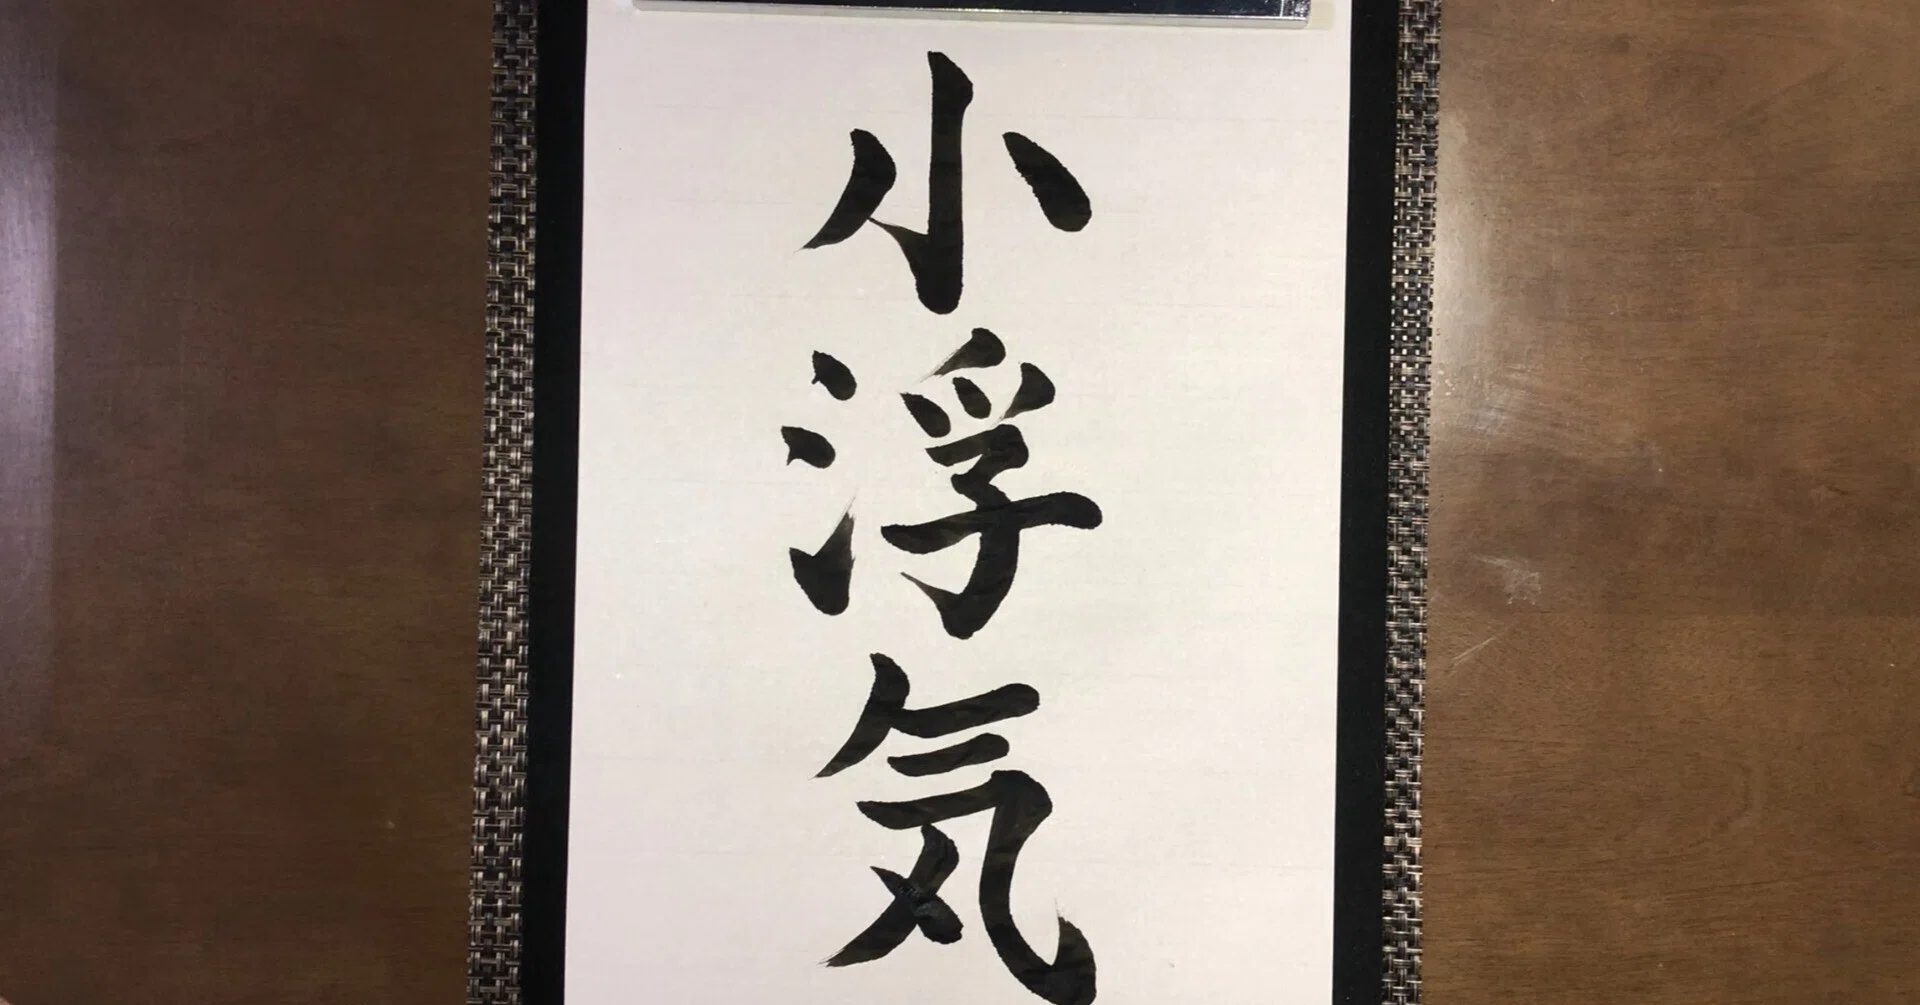 小浮気